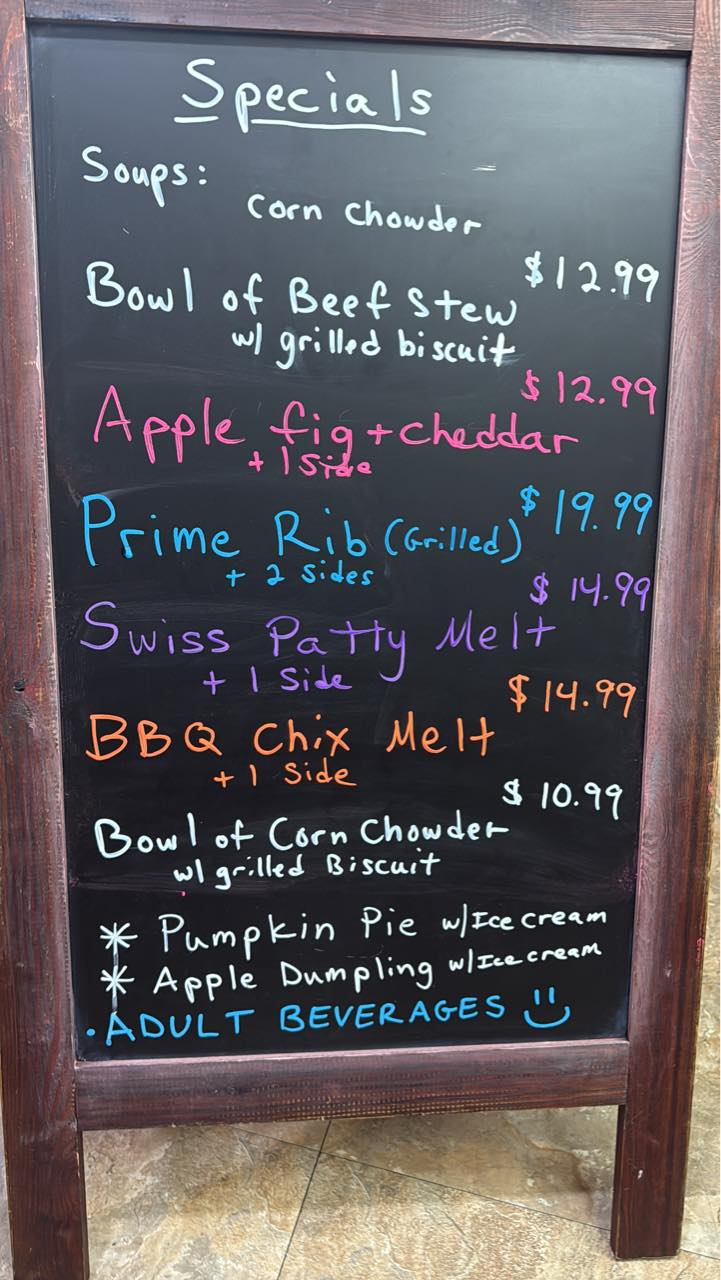 Specials
Soups:
Corn Chowder
$12.99
Bowl of Beef Stew
w/ grilled biscuit
$12.99
Apple fig + cheddar
+ 1 Side
$19.99
Prime Rib (Grilled)
+ 2 Sides
$14.99
Swiss Patty Melt
+ 1 Side
$14.99
BBQ Chix Melt
+ 1 Side
$10.99
Bowl of Corn Chowder
w/ grilled Biscuit
* Pumpkin Pie w/Ice cream
* Apple Dumpling w/Ice cream
• ADULT BEVERAGES